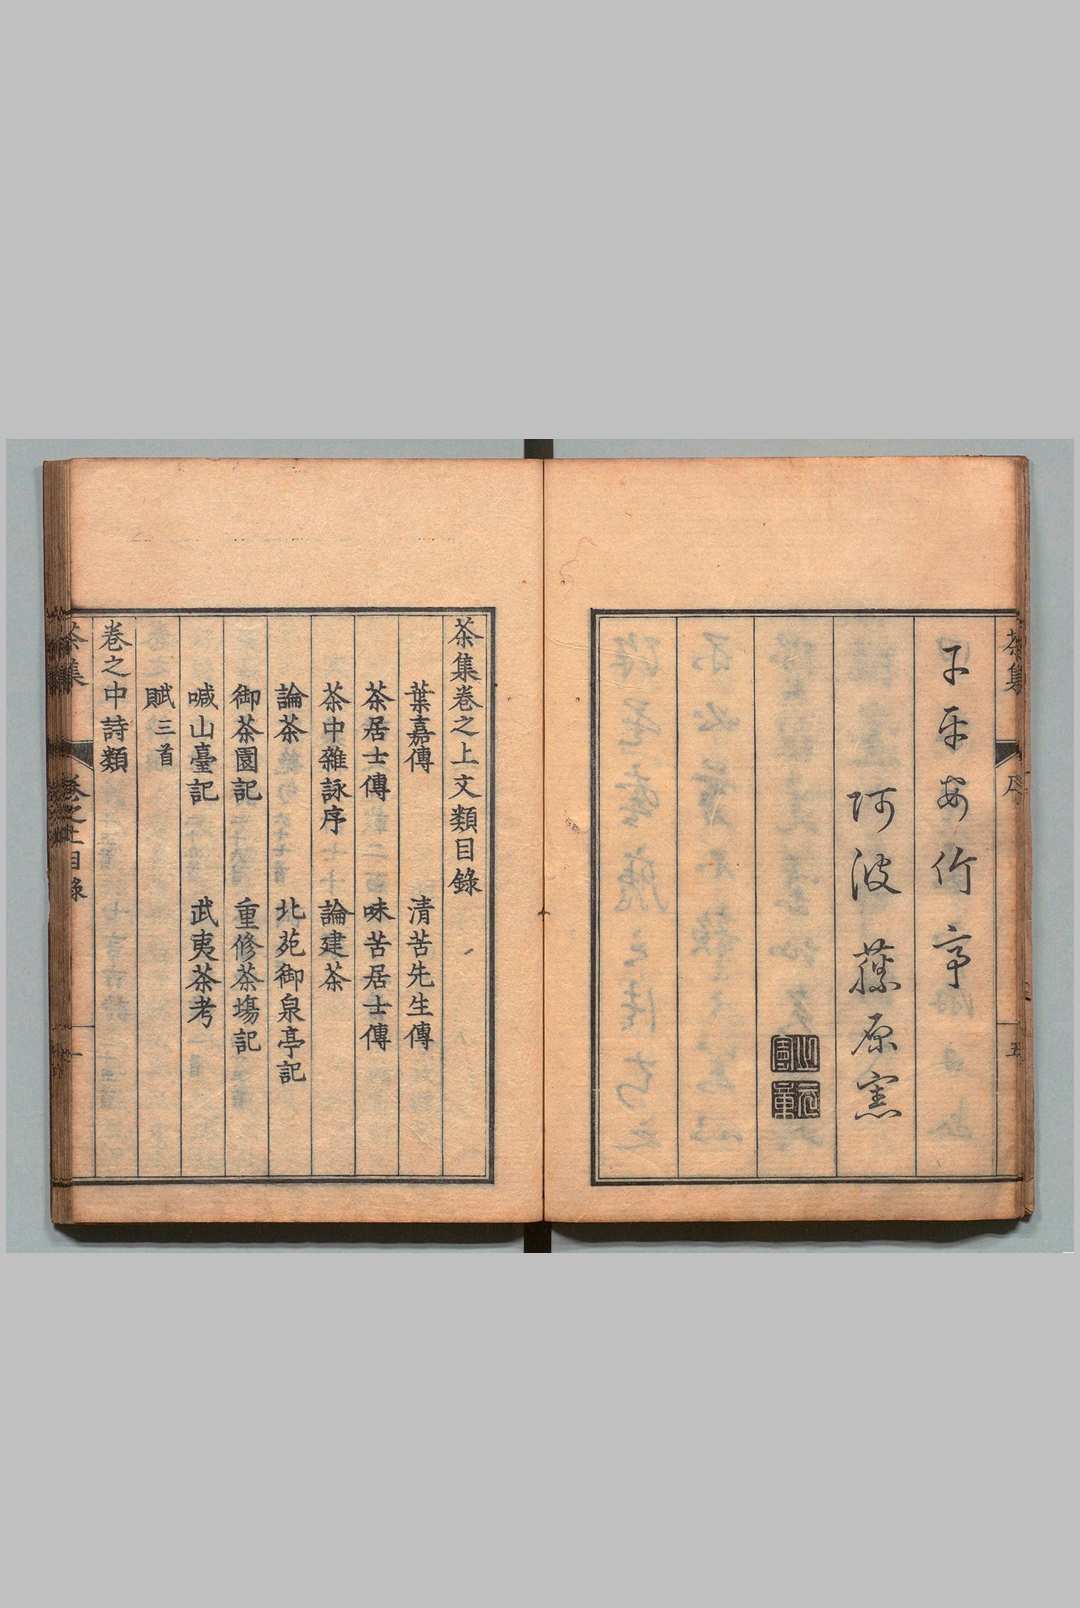 于平安竹亭
阿波藤原憲
茶集
序
五
茶集卷之上文類目錄
葉嘉傳　清苦先生傳
茶居士傳　味苦居士傳
茶中雜詠序　論建茶
論茶　北苑御泉亭記
御茶園記　重修茶塲記
喊山臺記　武夷茶考
賦三首
卷之中詩類
茶集
卷之上目錄
一